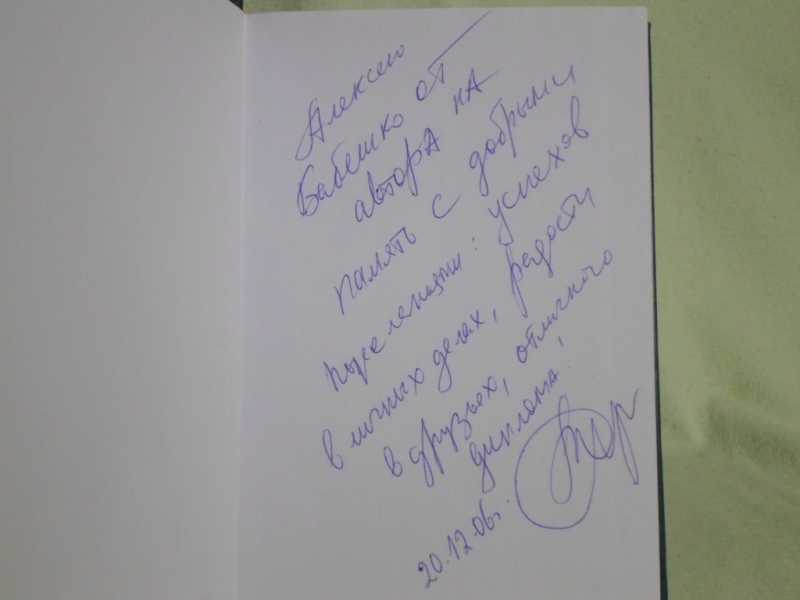 Алексею
Бабешко от
автора на
память с добрыми
пожеланиями: успехов
в личных делах, радости
в друзьях, отличного
диплома!
20.12.06г.